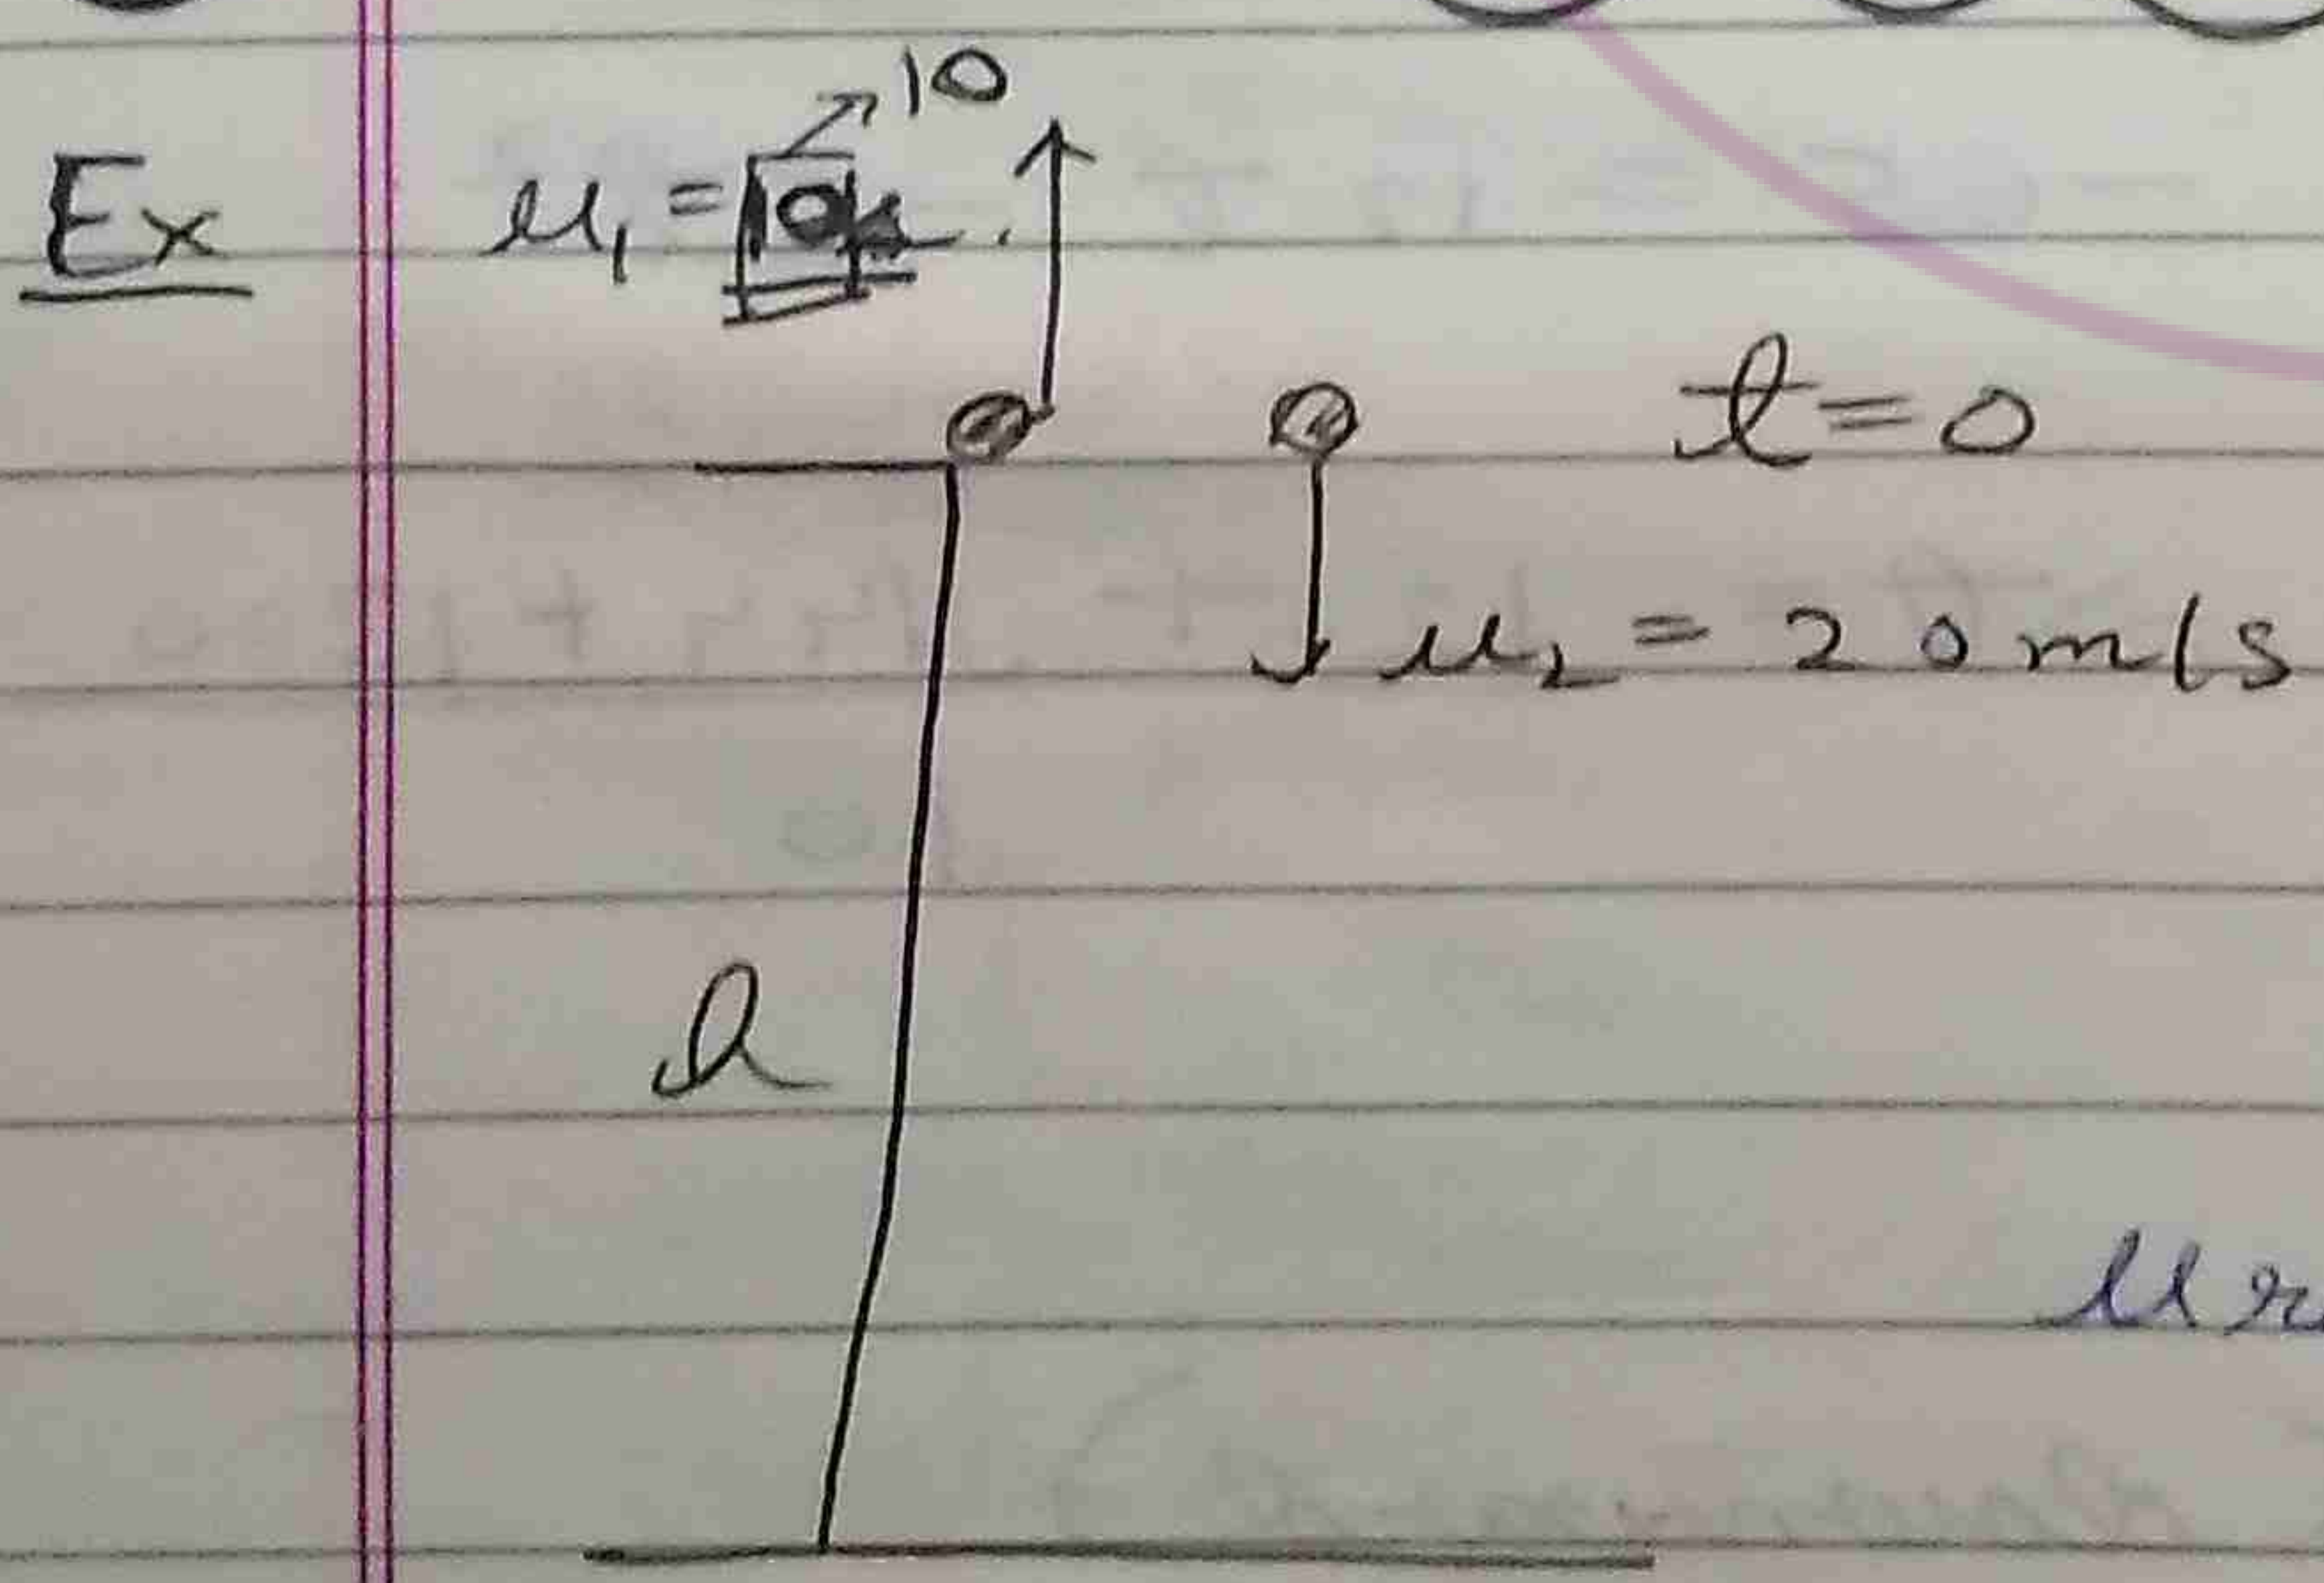 10
Ex u₁ = 10 .
t = 0
u₂ = 20 m/s
h
ur